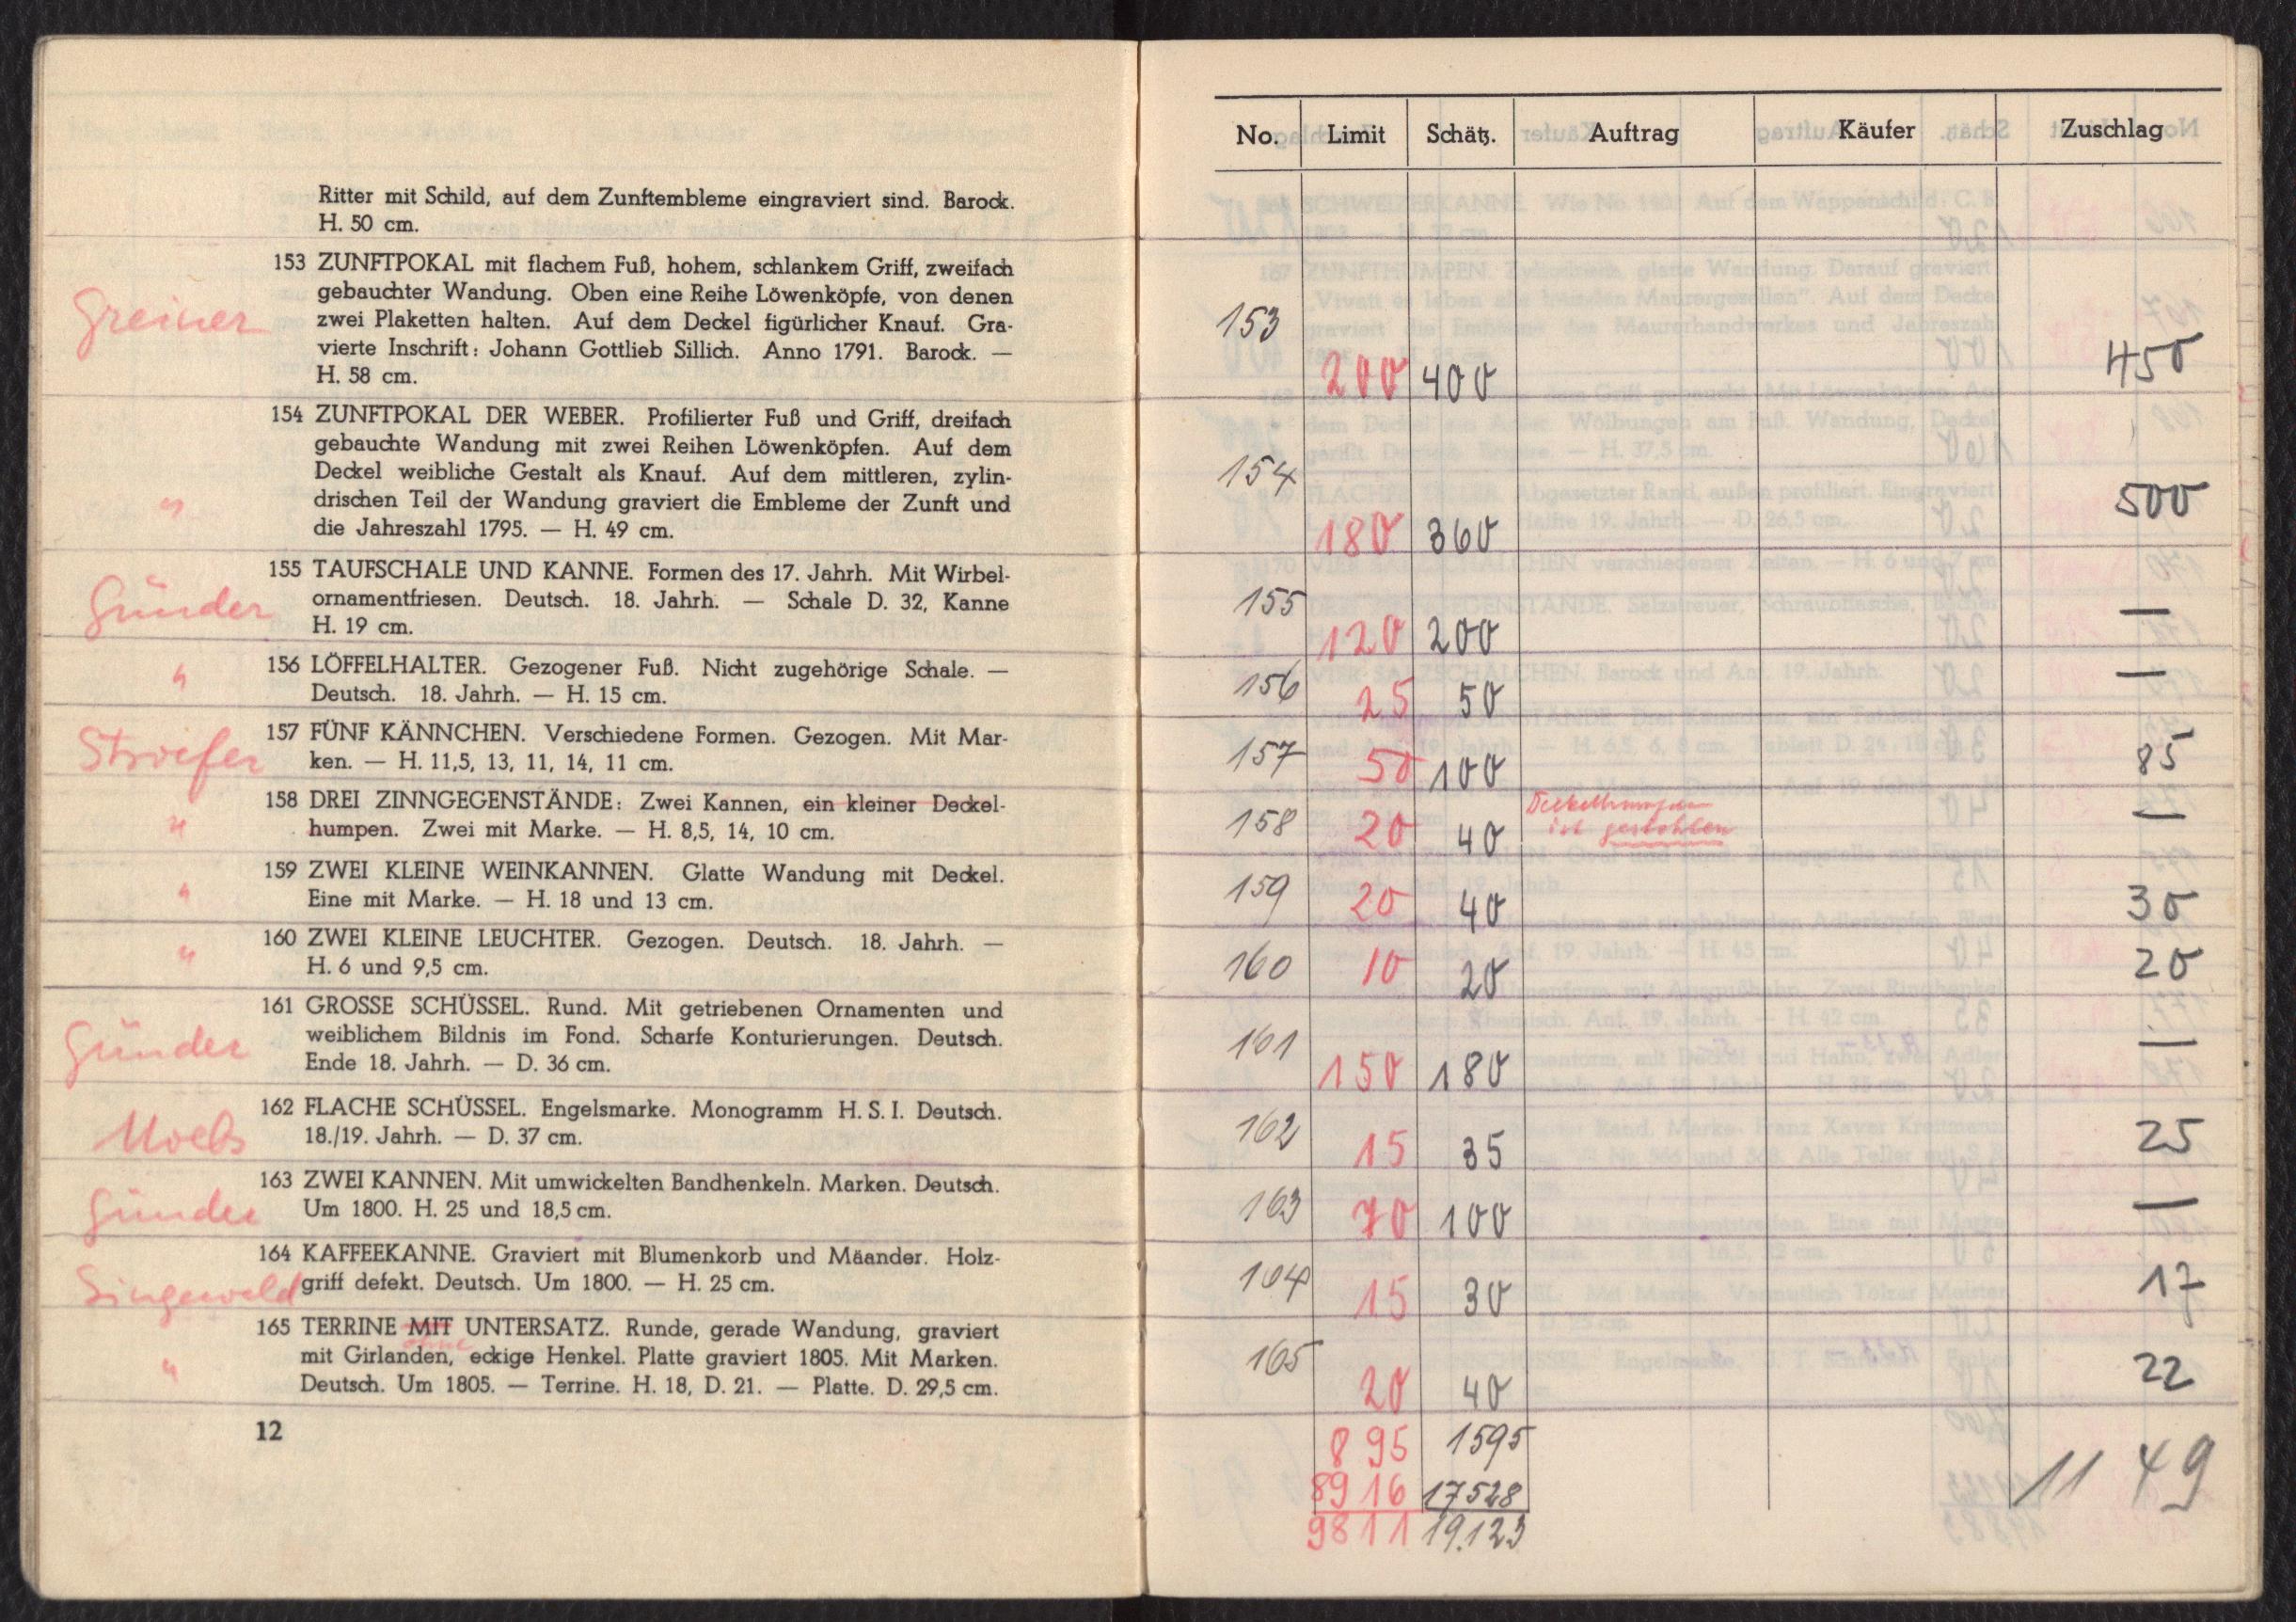 Ritter mit Schild, auf dem Zunftembleme eingraviert sind. Barock.
H. 50 cm.
Greiner
153 ZUNFTPOKAL mit flachem Fuß, hohem, schlankem Griff, zweifach
gebauchter Wandung. Oben eine Reihe Löwenköpfe, von denen
zwei Plaketten halten. Auf dem Deckel figürlicher Knauf. Gra-
vierte Inschrift: Johann Gottlieb Sillich. Anno 1791. Barock. —
H. 58 cm.
154 ZUNFTPOKAL DER WEBER. Profilierter Fuß und Griff, dreifach
gebauchte Wandung mit zwei Reihen Löwenköpfen. Auf dem
Deckel weibliche Gestalt als Knauf. Auf dem mittleren, zylin-
drischen Teil der Wandung graviert die Embleme der Zunft und
die Jahreszahl 1795. — H. 49 cm.
"
155 TAUFSCHALE UND KANNE. Formen des 17. Jahrh. Mit Wirbel-
ornamentfriesen. Deutsch. 18. Jahrh. — Schale D. 32, Kanne
H. 19 cm.
Günder
156 LÖFFELHALTER. Gezogener Fuß. Nicht zugehörige Schale. —
Deutsch. 18. Jahrh. — H. 15 cm.
"
157 FÜNF KÄNNCHEN. Verschiedene Formen. Gezogen. Mit Mar-
ken. — H. 11,5, 13, 11, 14, 11 cm.
Stroefer
158 DREI ZINNGEGENSTÄNDE: Zwei Kannen, ein kleiner Deckel-
humpen. Zwei mit Marke. — H. 8,5, 14, 10 cm.
"
159 ZWEI KLEINE WEINKANNEN. Glatte Wandung mit Deckel.
Eine mit Marke. — H. 18 und 13 cm.
"
160 ZWEI KLEINE LEUCHTER. Gezogen. Deutsch. 18. Jahrh. —
H. 6 und 9,5 cm.
"
161 GROSSE SCHÜSSEL. Rund. Mit getriebenen Ornamenten und
weiblichem Bildnis im Fond. Scharfe Konturierungen. Deutsch.
Ende 18. Jahrh. — D. 36 cm.
Günder
162 FLACHE SCHÜSSEL. Engelsmarke. Monogramm H. S. I. Deutsch.
18./19. Jahrh. — D. 37 cm.
163 ZWEI KANNEN. Mit umwickelten Bandhenkeln. Marken. Deutsch.
Um 1800. H. 25 und 18,5 cm.
Günder
164 KAFFEEKANNE. Graviert mit Blumenkorb und Mäander. Holz-
griff defekt. Deutsch. Um 1800. — H. 25 cm.
Singewald
165 TERRINE MIT UNTERSATZ. Runde, gerade Wandung, graviert
ohne
mit Girlanden, eckige Henkel. Platte graviert 1805. Mit Marken.
Deutsch. Um 1805. — Terrine. H. 18, D. 21. — Platte. D. 29,5 cm.
"
12
No. Limit Schätz. Auftrag Käufer Zuschlag
153 200 400 450
154 180 360 500
155 120 200 —
156 25 50 —
157 50 100 85
158 20 40 Deckelhumpen —
ist gestohlen
159 20 40 30
160 10 20 20
161 150 180 —
162 15 35 25
163 70 100 —
164 15 30 17
165 20 40 22
895 1595
8916 17528
9811 19.123
1149